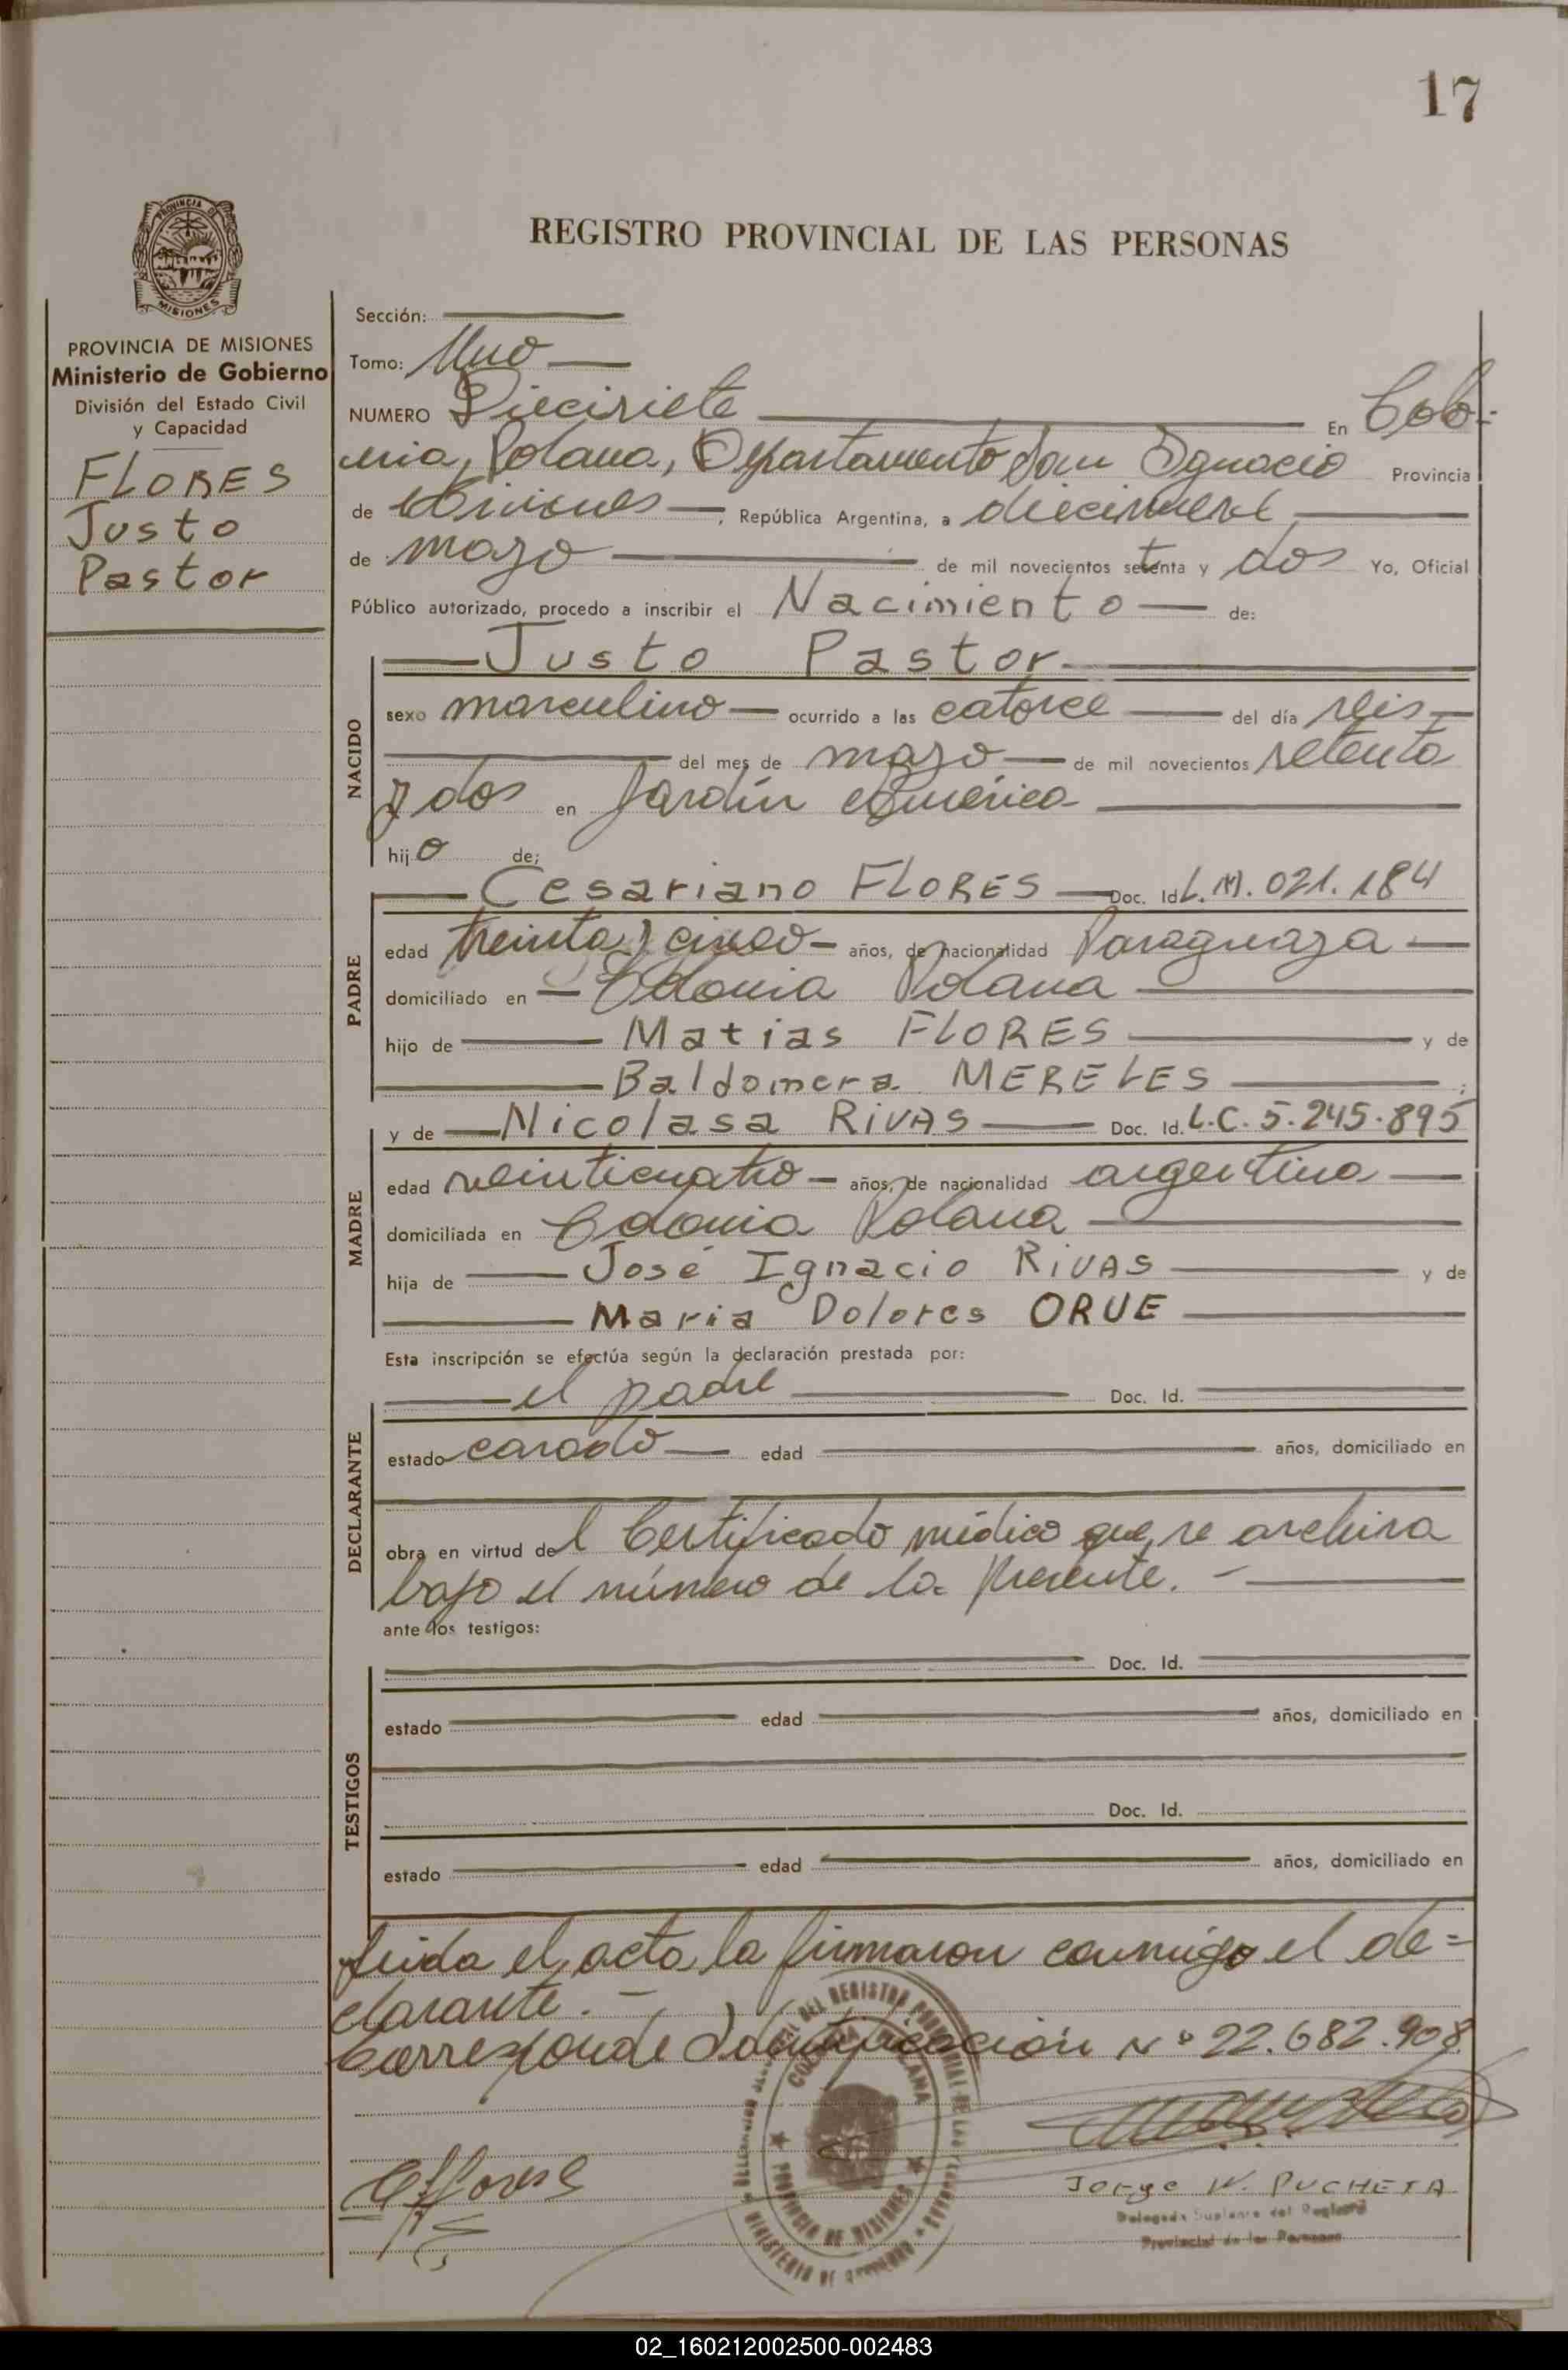 17
PROVINCIA DE MISIONES
REGISTRO PROVINCIAL DE LAS PERSONAS
PROVINCIA DE MISIONES
Ministerio de Gobierno
División del Estado Civil
y Capacidad
FLORES
Justo
Pastor
Sección:
Tomo: Uno
NUMERO Diecisiete En Colo-
nia, Polana, Departamento San Ignacio Provincia
de Misiones, República Argentina, a diecinueve
de mayo de mil novecientos setenta y dos Yo, Oficial
Público autorizado, procedo a inscribir el Nacimiento de:
NACIDO
Justo Pastor
sexo masculino ocurrido a las catorce del día seis
del mes de mayo de mil novecientos setenta
y dos en Jardín América
hijo de;
PADRE
Cesariano FLORES Doc. Id L.M. 021.184
edad treinta y cinco años, de nacionalidad Paraguaya
domiciliado en Colonia Polana
hijo de Matias FLORES y de
Baldomera MERELES ;
MADRE
y de Nicolasa RIVAS Doc. Id. L.C. 5.245.895
edad veinticuatro años, de nacionalidad argentina
domiciliada en Colonia Polana
hija de José Ignacio RIVAS y de
Maria Dolores ORUE
Esta inscripción se efectúa según la declaración prestada por:
DECLARANTE
el padre Doc. Id.
estado casado edad años, domiciliado en
obra en virtud del Certificado médico que se archiva
bajo el número de la presente. -
ante los testigos:
TESTIGOS
Doc. Id.
estado edad años, domiciliado en
Doc. Id.
estado edad años, domiciliado en
Leida el acta la firmaron conmigo el de=
clarante. -
Corresponde Identificación Nº 22.682.908
CFlores
Jorge W. PUCHETA
Delegado Suplente del Registro
Provincial de las Personas
COLONIA POLANA
PROVINCIA DE MISIONES
MINISTERIO DE GOBIERNO
02_160212002500-002483